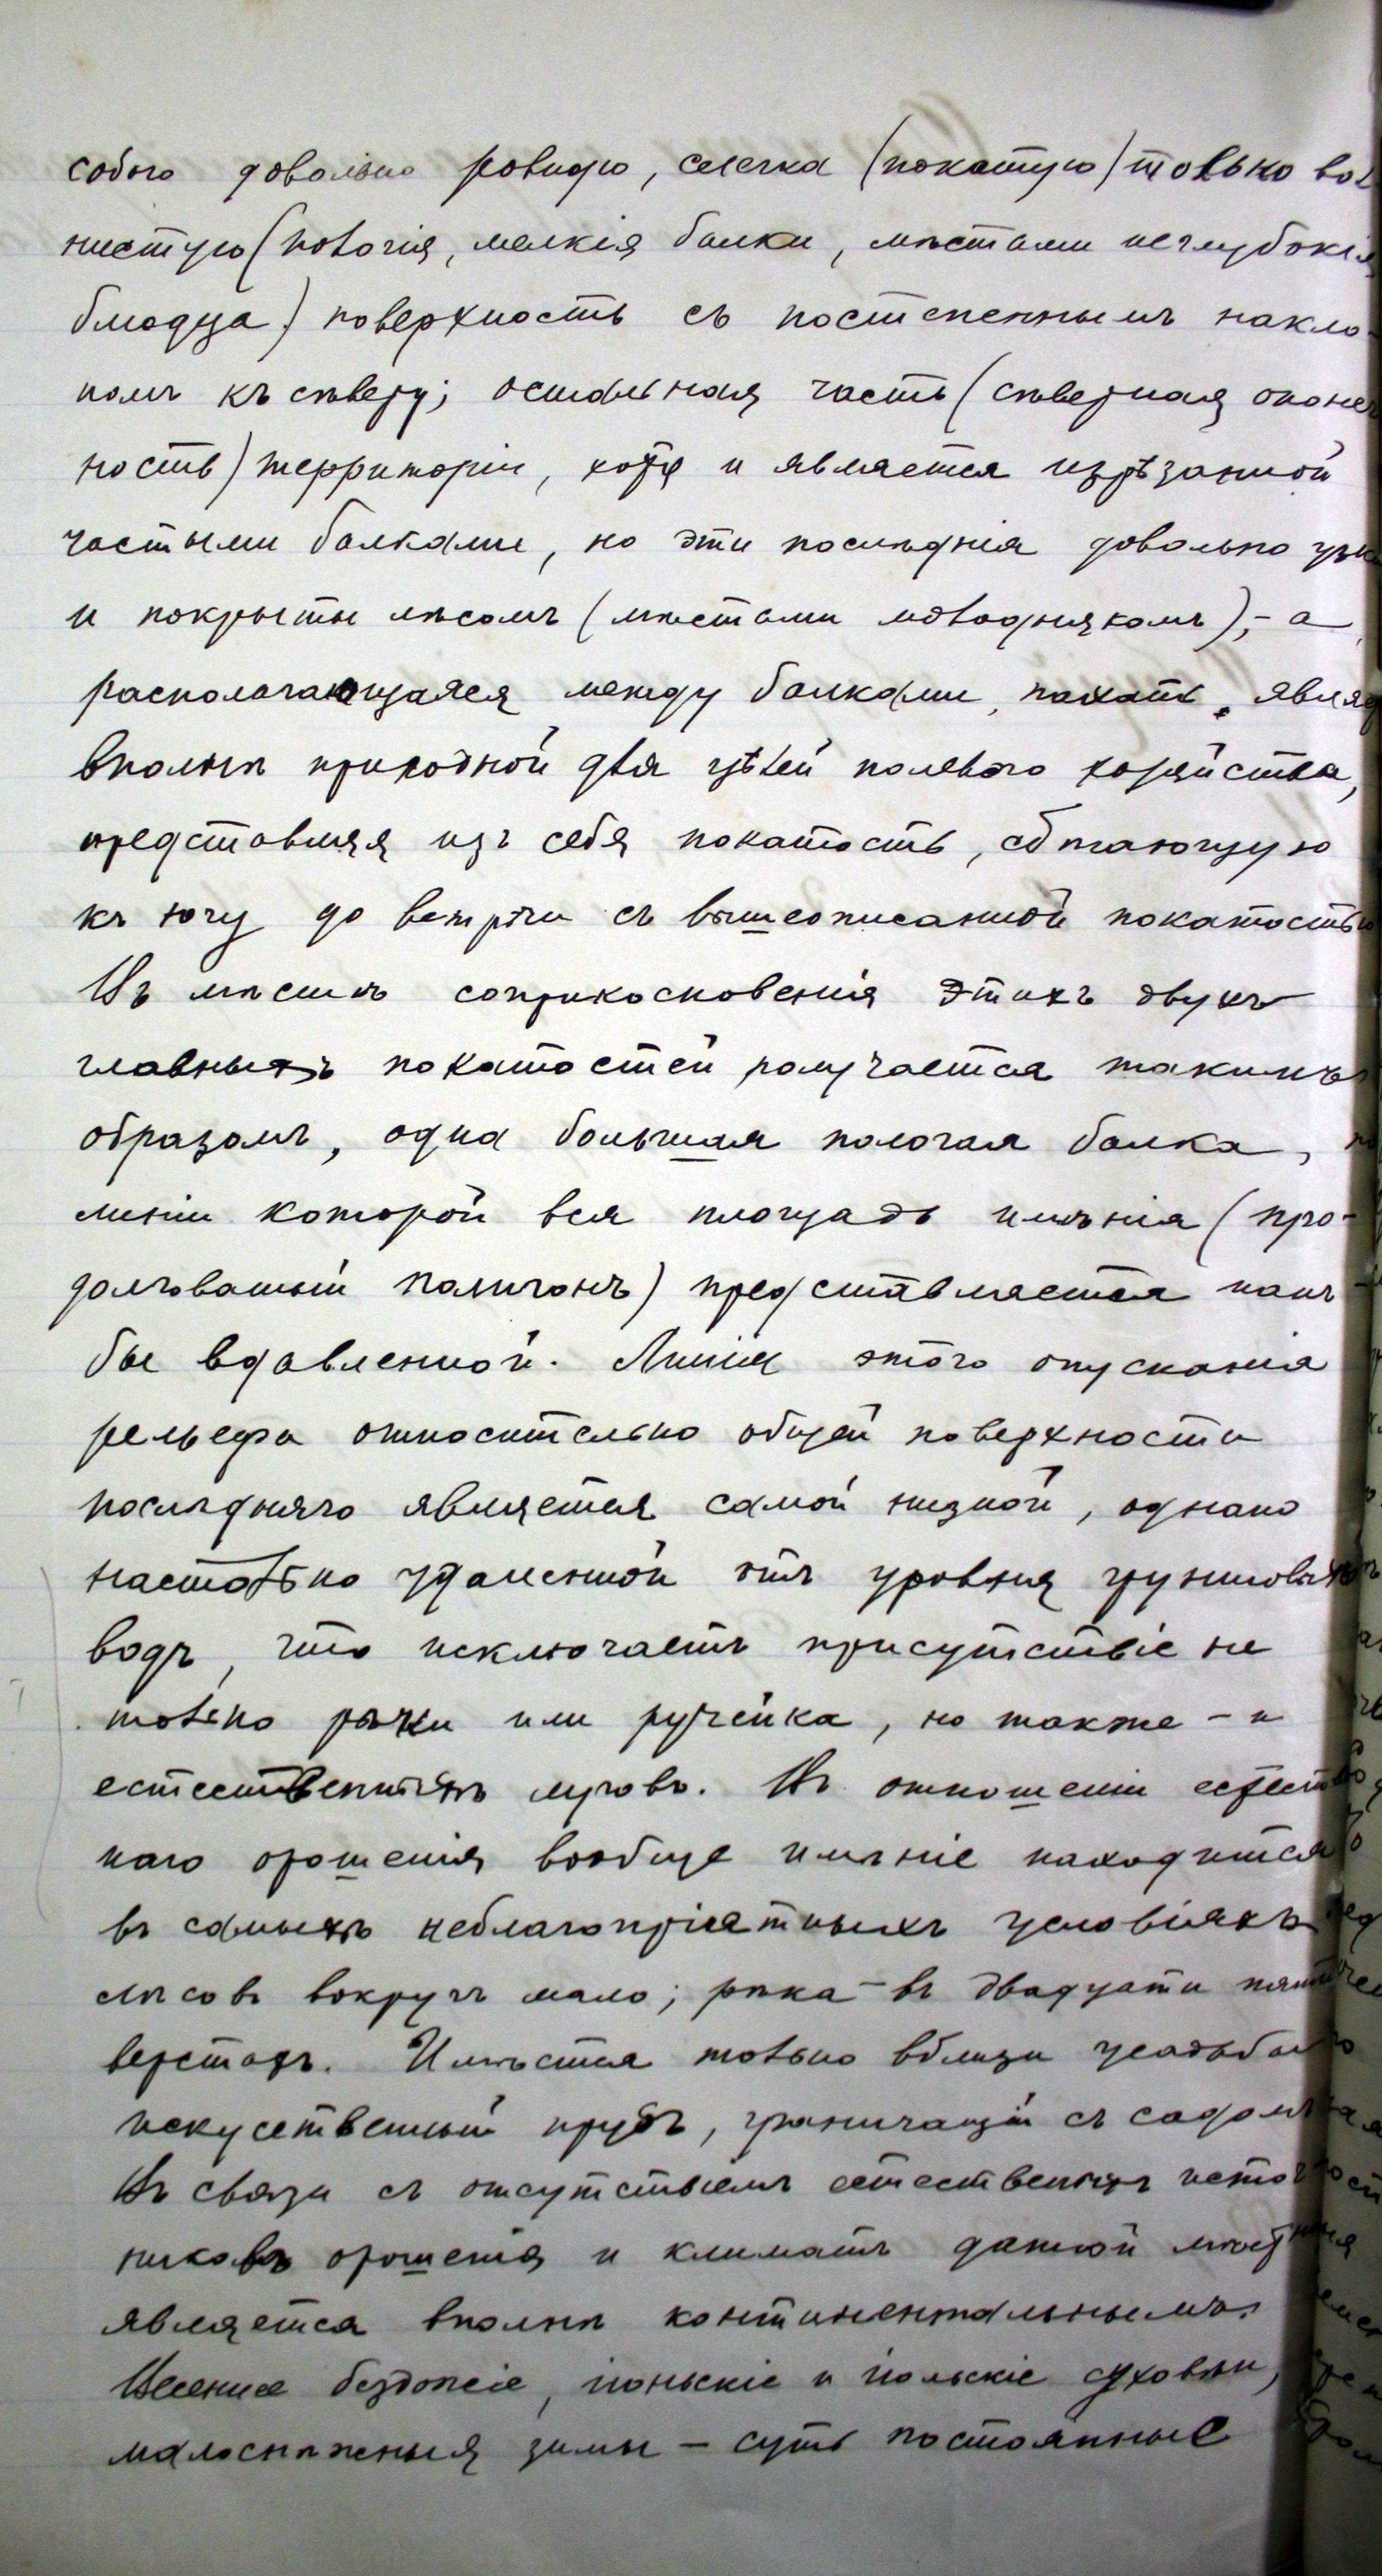 собою довольно ровную, слегка (покатую) только вол
нистую (пологія, мелкія балки, мѣстами неглубокія
блюдца) поверхность съ постепеннымъ накло-
номъ къ сѣверу; остальная часть (сѣверная оконеч
ность) территоріи, хотя и является изрѣзанной
частыми балками, но эти послѣднія довольно узки
и покрыты лѣсомъ (мѣстами молоднякомъ);- а
располагающаяся между балками, пахать,
вполнѣ пригодной для цѣлей полевого хозяйства,
представляя изъ себя покатость, сбѣгающую
къ югу до встрѣчи съ вышеописанной покатостью
Въ мѣстѣ соприкосновенія этихъ двухъ
главныхъ покатостей получается такимъ
образомъ, одна большая пологая балка, по
линіи которой вся площадь имѣнія (про-
долговатый полигонъ) представляется какъ-
бы вдавленной. Линія этого опусканія
рельефа относительно общей поверхности
послѣдняго является самой низкой, однако
настолько удаленной отъ уровня грунтовыхъ
водъ, что исключаетъ присутствіе не
только рѣчки или ручейка, но также - и
естественныхъ луговъ. Въ отношеніи
наго орошенія вообще имѣніе находится
въ самыхъ неблагопріятныхъ условіяхъ
лѣсовъ вокругъ мало; рѣка - въ двадцати пяти
верстахъ. Имѣется только вблизи усадьбы
искусственный прудъ, граничащій съ садомъ
Въ связи съ отсутствіемъ естественныхъ источ
никовъ орошенія и климатъ данной
является вполнѣ континентальнымъ.
Весеннее бездожіе, іюньскіе и іюльскіе суховѣи,
малоснѣжныя зимы - суть постоянные